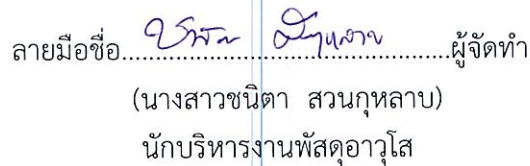 ลายมือชื่อ........................................ผู้จัดทำ
(นางสาวชนิตา สวนกุหลาบ)
นักบริหารงานพัสดุอาวุโส